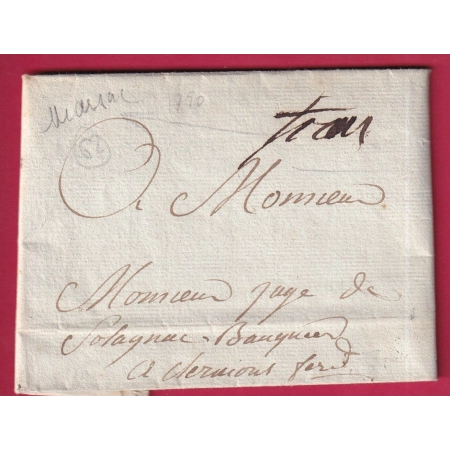 Marsac 1790
62
fran
A Monsieur
Monsieur juge de
Solagnac Banquier
A clermont ferd